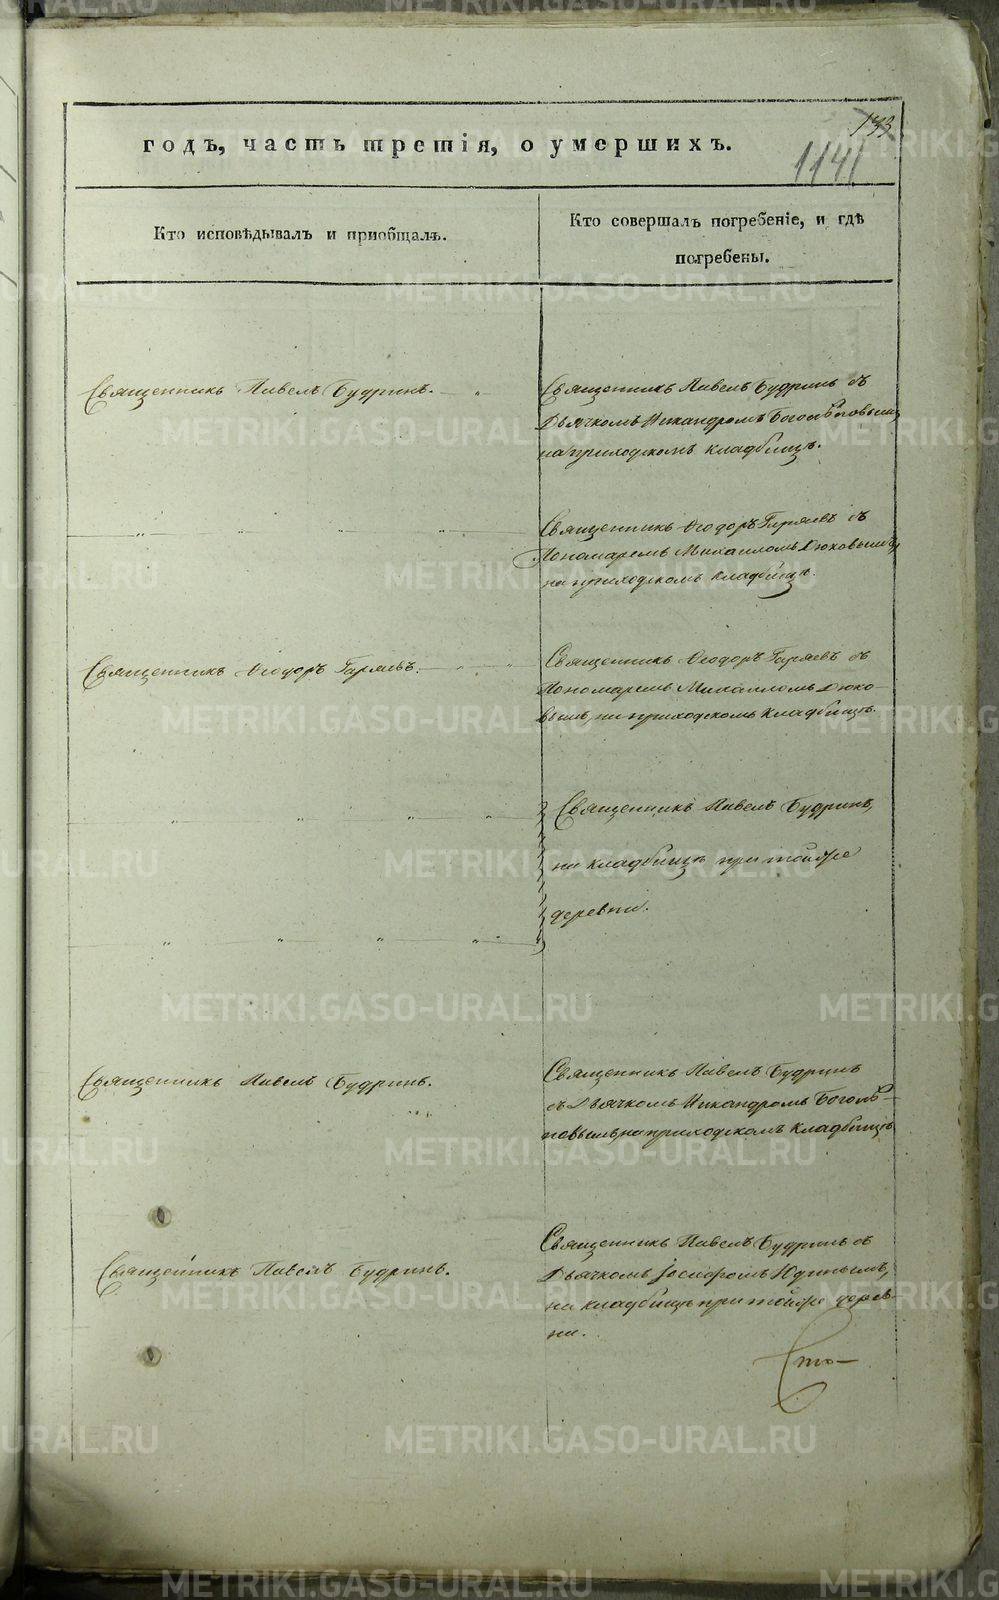 годъ, часть третія, о умершихъ.
133
1141
Кто исповѣдывалъ и пріобщалъ.
Кто совершалъ погребеніе, и гдѣ
погребены.
Священникъ Павелъ Будринъ.
Священникъ Павелъ Будринъ съ
Дьячкомъ Никандромъ Боголѣповымъ
на приходскомъ кладбищѣ.
Священникъ Ѳеодоръ Гаряевъ съ
Пономаремъ Михаиломъ Дюковымъ
на приходскомъ кладбищѣ.
Священникъ Ѳеодоръ Гаряевъ.
Священникъ Ѳеодоръ Гаряевъ съ
Пономаремъ Михаиломъ Дюко-
вымъ, на приходскомъ кладбищѣ.
Священникъ Павелъ Будринъ,
на кладбищѣ при той же
деревни.
Священникъ Павелъ Будринъ.
Священникъ Павелъ Будринъ
съ Дьячкомъ Никандромъ Боголѣ-
повымъ, на приходскомъ кладбищѣ
Священникъ Павелъ Будринъ.
Священникъ Павелъ Будринъ съ
Дьячкомъ Іосифомъ
на кладбищѣ при той же дерев-
ни.
Сто-
METRIKI.GASO-URAL.RU